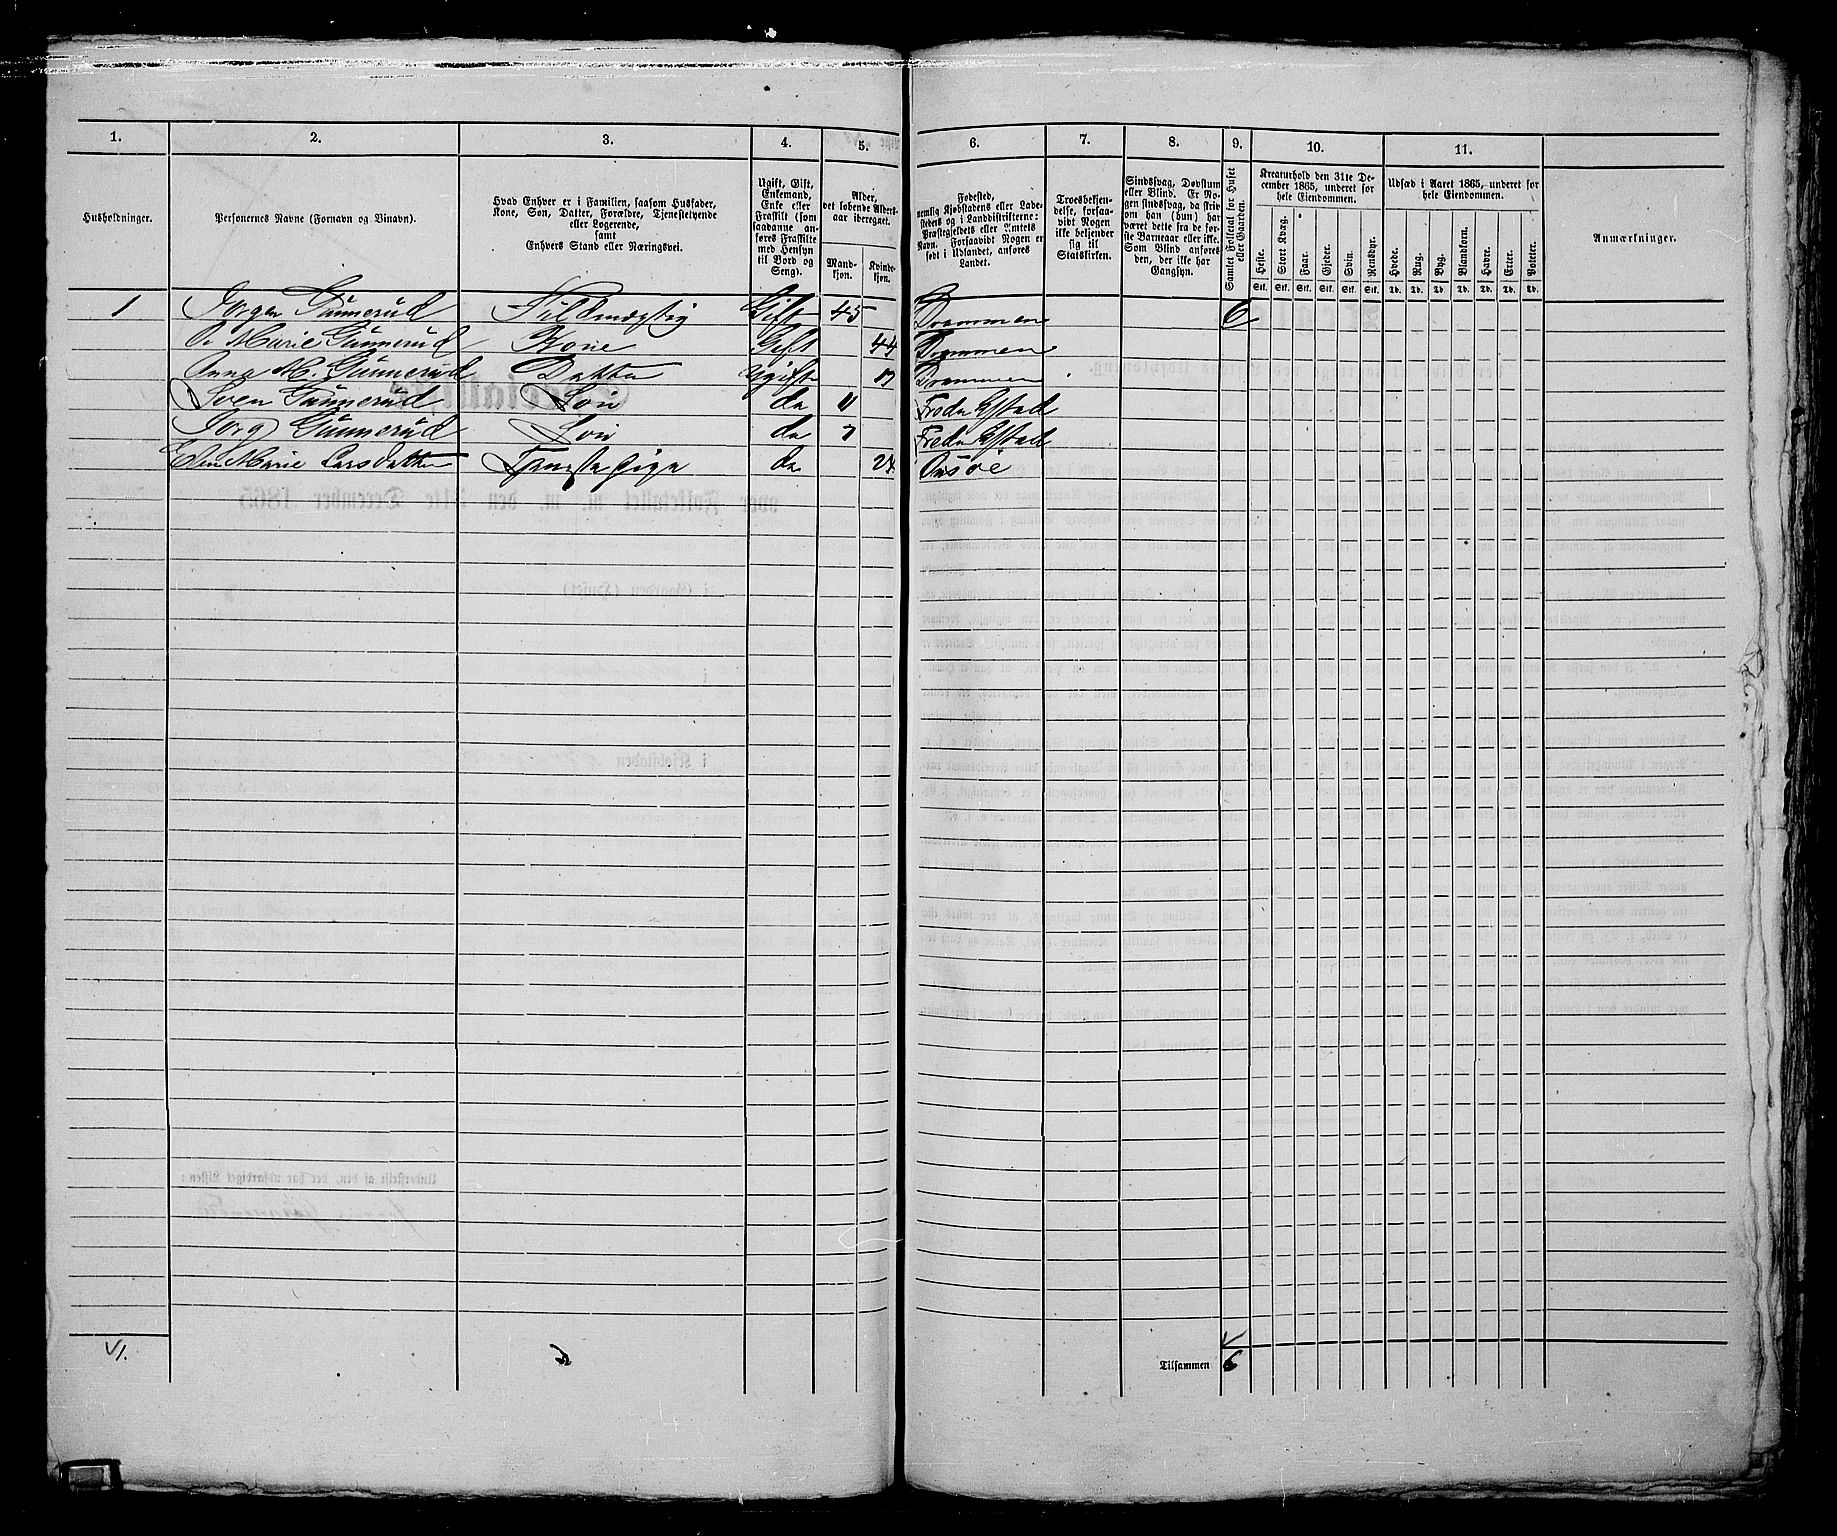 1. 2. 3. 4. 5. 6. 7. 8. 9. 10. 11.
Husholdninger.
Personernes Navne (Fornavn og Binavn).
Hvad Enhver er i Familien, saasom Husfader,
Kone, Søn, Datter, Forældre, Tjenestetyende
eller Logerende,
samt
Enhvers Stand eller Næringsvei.
Ugift, Gift,
Enkemand,
Enke eller
Fraskilt (som
saadanne an-
føres Fraskilte
med Hensyn
til Bord og
Seng).
Alder,
det løbende Alders-
aar iberegnet.
Mand-
kjøn.
Kvinde-
kjøn.
Fødested,
nemlig Kjøbstadens eller Lade-
stedets og i Landdistrikterne:
Præstegjeldets eller Amtets
Navn. Forsaavidt Nogen er
født i Udlandet, anføres
Landet.
Troesbekjen-
delse, forsaa-
vidt Nogen
ikke bekjender
sig til
Statskirken.
Sindssvag, Døvstum
eller Blind. Er No-
gen sindssvag, da skriv
om han (hun) har
været dette fra de før-
ste Barneaar eller ikke.
Som Blind anføres
den, der ikke har
Gangsyn.
Samlet Folketal for Huset
eller Gaarden.
Kreaturhold den 31te De-
cember 1865, underet for
hele Eiendommen.
Heste. Stort Kvæg. Faar. Gjeder. Svin. Rensdyr.
Stk. Stk. Stk. Stk. Stk. Stk.
Udsæd i Aaret 1865, underet for
hele Eiendommen.
Hvede. Rug. Byg. Blandkorn. Havre. Erter. Poteter.
Td. Td. Td. Td. Td. Td. Td.
Anmærkninger.
1 Jørgen Gunnerud Fuldmægtig Gift 45 Drammen 6
Marie Gunnerud Kone Gift 44 Drammen
Anna M. Gunnerud Datter Ugift Drammen
Sven Gunnerud Søn do 11 Fredrikstad
Gunnerud Søn do 7 Fredrikstad
Elen Marie Larsdatter Tjenestepige do 24 Onsøe
Tilsammen 6